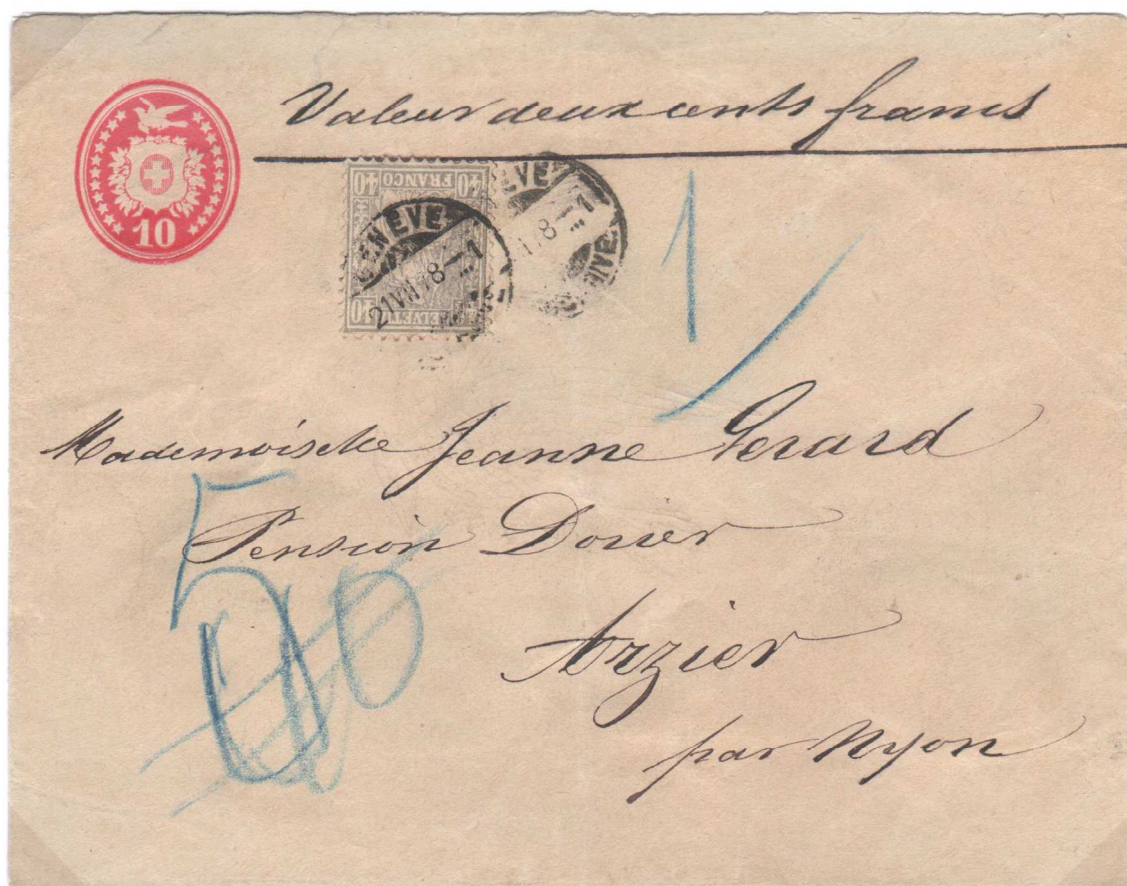 Valeur deux cents francs
10
40 FRANCO 40
40 HELVETIA
GENÈVE
21 VII 78 1
GENÈVE
1
Mademoiselle Jeanne Gerard
5
Pension Dorier
Arzier
par Nyon